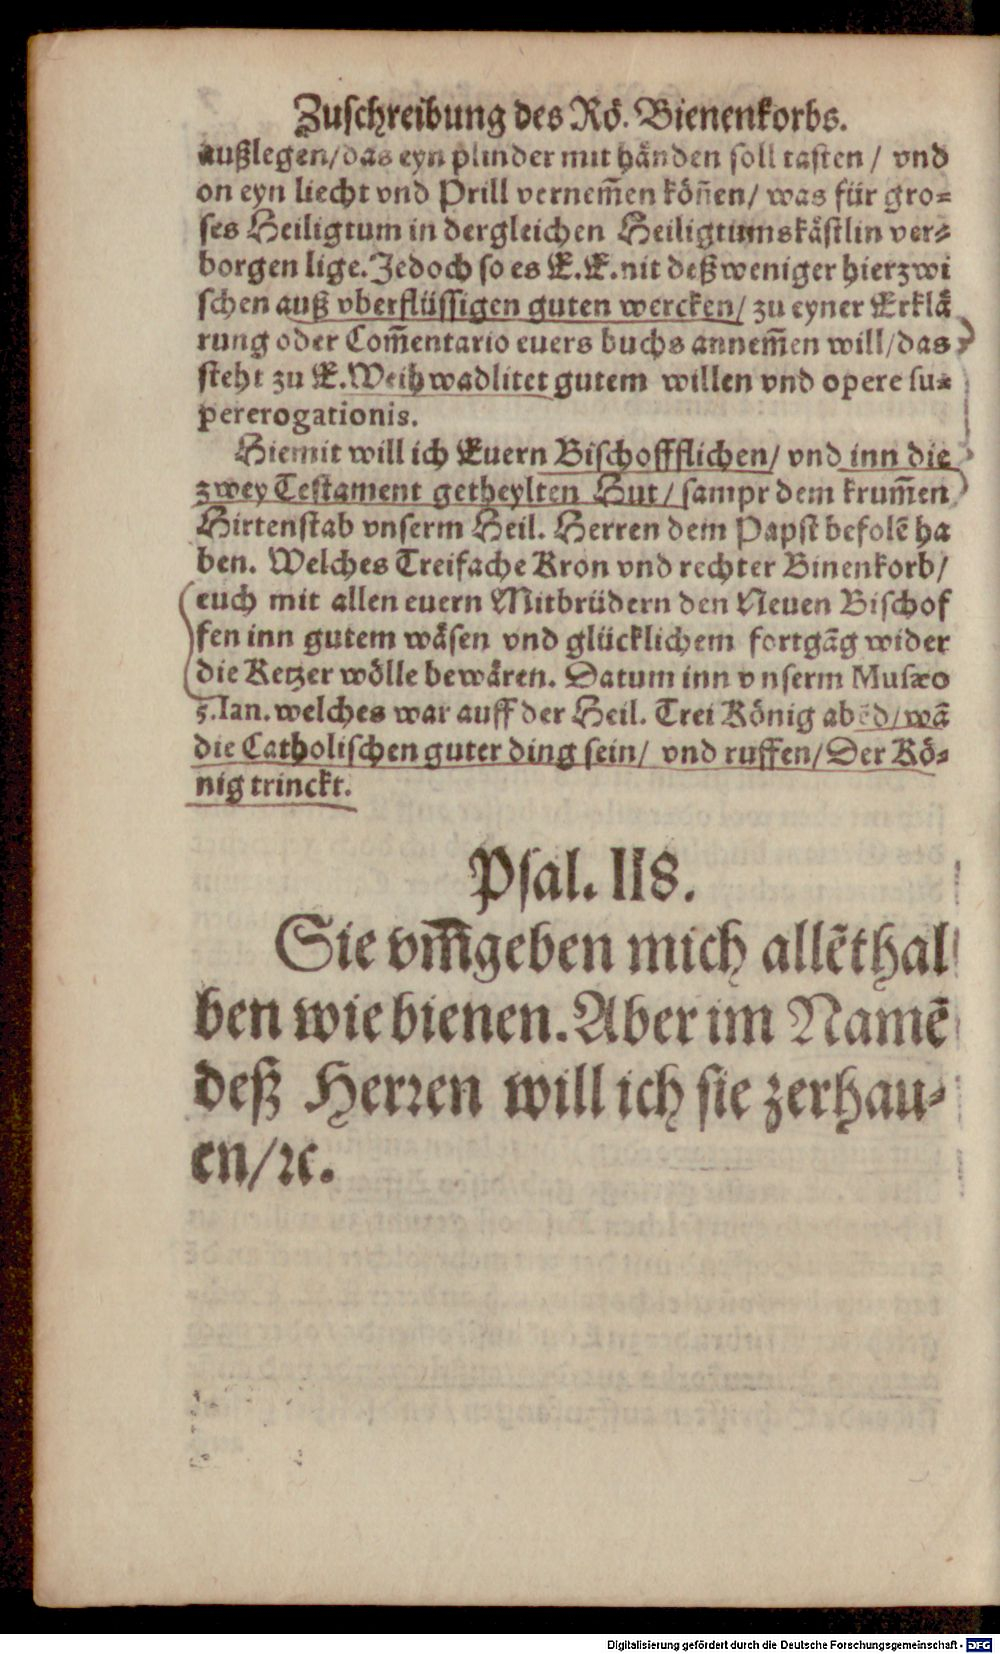 Zuschreibung des Rö. Bienenkorbs.
außlegen/ das eyn plinder mit händen soll tasten / vnd
on eyn liecht vnd Prill vernem̃en köñen/ was für gro⸗
ses Heiligtum in dergleichen Heiligtumskästlin ver⸗
borgen lige. Jedoch so es E. E. nit deß weniger hierzwi
schen auß vberflüssigen guten wercken/ zu eyner Erklä
rung oder Com̃entario euers buchs annem̃en will/ das
steht zu E. Weihwadlitet gutem willen vnd opere su⸗
pererogationis.
Hiemit will ich Euern Bischoffflichen/ vnd inn die
zwey Testament getheylten Hut/ sampt dem krum̃en
Hirtenstab vnserm Heil. Herren dem Papst befolẽ ha
ben. Welches Treifache Kron vnd rechter Binenkorb/
euch mit allen euern Mitbrüdern den Neuen Bischof
fen inn gutem wäsen vnd glücklichem fortgãg wider
die Ketzer wölle bewären. Datum inn vnserm Musæo
5. Ian. welches war auff der Heil. Trei König abẽd/ wã
die Catholischen guter ding sein/ vnd ruffen/ Der Kö⸗
nig trinckt.
Psal. 118.
Sie vm̃geben mich allẽthal
ben wie bienen. Aber im Namẽ
deß Herꝛen will ich sie zerhau⸗
en/ ꝛc.
Digitalisierung gefördert durch die Deutsche Forschungsgemeinschaft - DFG